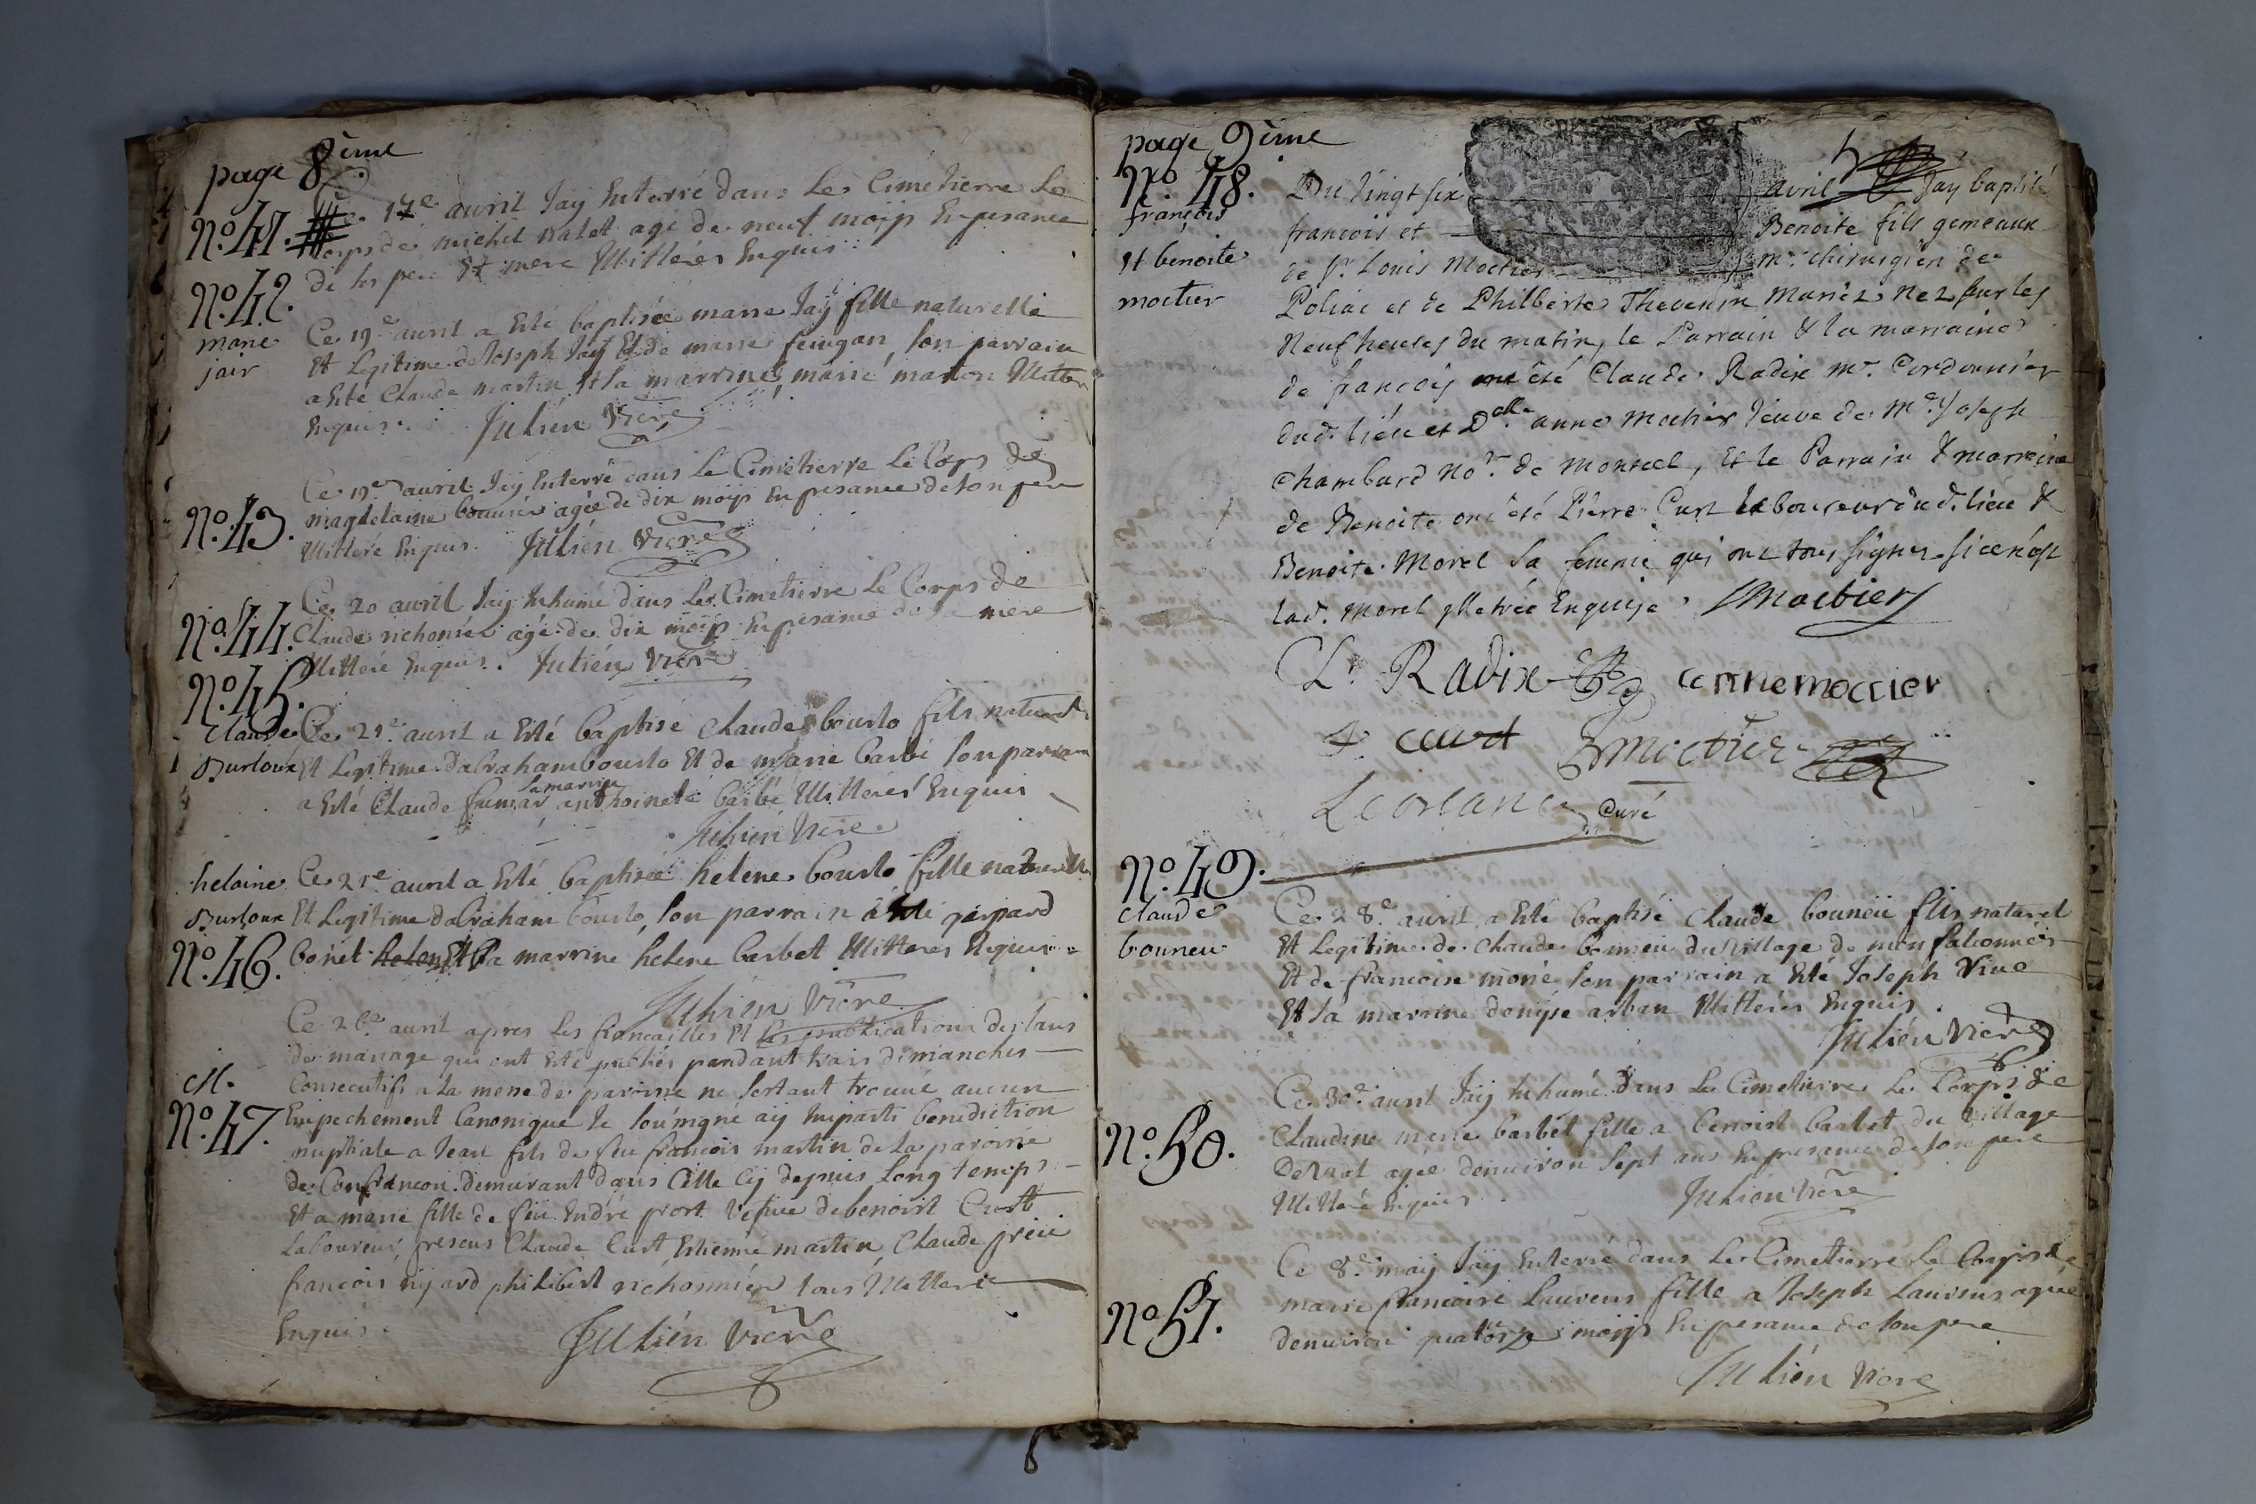 page 8ème
No. 41.
Ce 17e avril Jay Enterré dans Le Cimetierre Le
Corps de michel valet agé de neuf moijs En presance
de ses pere Et mere Illitterés Enquis
No. 42.
marie
jair
Ce 19e avril a Esté baptisée marie Jay fille naturelle
Et Legitime de Joseph Jay Et de marie feugan, son parrain
a Esté Claude martin Et la marrine, marie marton Illiter
Enquis. Julién Vicre
No. 43.
Ce 19e avril Jay Enterré dans Le Cimetierre Le Corps de
magdelaine agée de dix moijs En presance de son pere
Illitteré Enquis. Julién Vicre
No. 44.
Ce 20 avril Jay Inhumé dans Le Cimetierre Le Corps de
Claude richonier agé de dix moijs En presance de mere
Illitteré Enquis. Julién Vicre
No. 45.
Claude
Burloux
Ce 21e avril a Esté baptisé Claude bourlo fils naturel
Et Legitime dabraham bourlo Et de marie barbe son parrain
a Esté Claude la marrine anthoinete barbé Illitterés Enquis
Julién Vicre
helaine
Burloux
No. 46.
Ce 21e avril a Esté baptisée helene bourlo fille naturelle
Et Legitime dabraham bourlo, son parrain a Esté gaspard
bonet Et la marrine helene barbet Illitterés Enquis
Julién Vicre
M.
No. 47.
Ce 26e avril apres les fiancailles Et les publications des bans
de mariage qui ont Esté publiés pandant trois dimanches
Consecutifs a la messe de paroisse ne sestant trouvé aucun
Empechement Canonique Je soussigné aij Imparti benediction
nuptiale a Jean fils de feu francois martin de La paroisse
de Confrancon demurant dans Celle Cij depuis Long temps
Et a marie fille de feu André prost Vefue de benoist Curt
Laboureur, presens Claude Curt Estienne martin Claude
francois philibert richonnier tous Illitteré
Enquis.
Julién Vicre
page 9ème
No 48.
françois
et benoite
moctier
Du Vingt six avril Jay baptisé
francois et Benoite fils gemeaux
de Sr. Louis Moctier mr. chirurgien de
Poliac et de Philberte Thevenin Mariéz nez sur les
Neuf heures du matin, le Parrain & la marraine
de francois ont été Claude Radix mr. Cordonnier
dud. lieu et Dlle anne Moctier Veuve de Me. Joseph
Chambard Nore. de Montcel, et le Parrain & marraine
de Benoite ont été Pierre Curt Laboureur dud. lieu &
Benoite Morel Sa femme qui ont tous signés si ce n'est
lad. Morel Illetrée Enquise. Moctier
Cl. Radix anne moccier
curt Moctier
Leorlanc curé
No. 49.
claude
bouneu
Ce 28e avril a Esté baptisé Claude bouneu fils naturel
Et Legitime de Claude bouneu du village de monfalconnét
Et de francoise son parrain a Esté Joseph Vivo
Et la marrine denijse arban Illitterés Enquis
Julién Vicre
No. 50.
Ce 30e avril Jaij Inhumé dans Le Cimetierre Le Corps de
Claudine marie barbet fille a benoist barbet du village
agée denviron sept ans En presance de son pere
Illitteré Enquis. Julién Vicre
No 51.
Ce 8e maij Jaij Enterré dans Le Cimetierre Le Corps de
marie francoise Laurens fille a Joseph Laurens agée
denviron quatorze moijs En presance de son pere
Julién Vicre